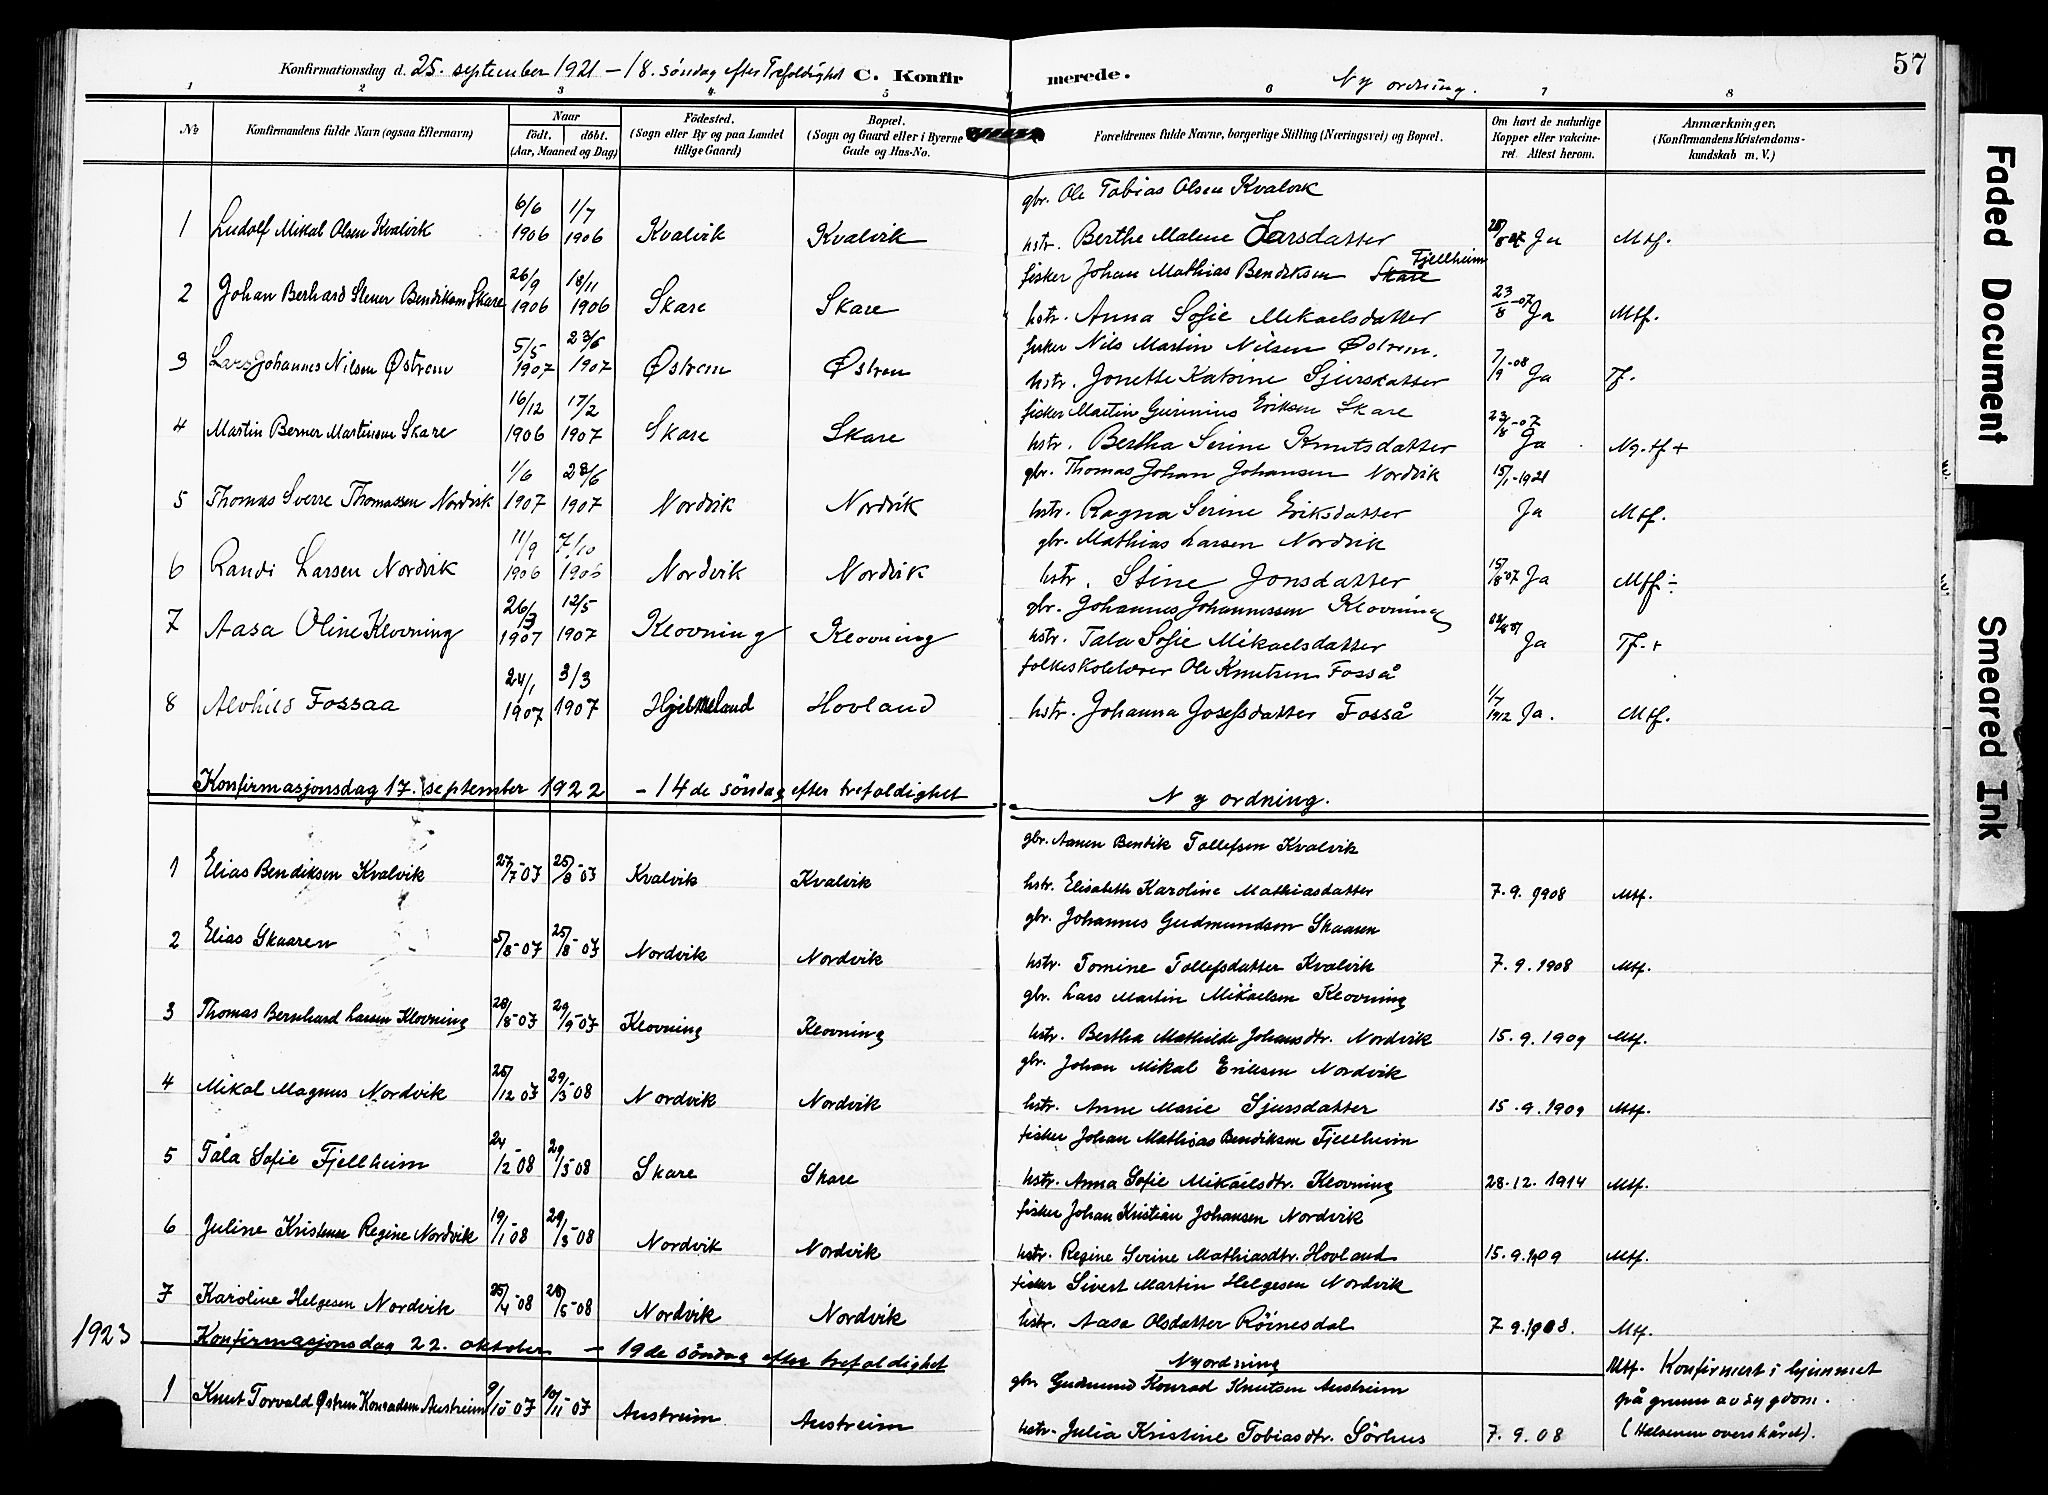 57
Konfirmationsdag d. 25. september 1921 – 18. søndag efter Trefoldighet C. Konfirmerede. Ny ordning.
1 2 3 4 5 6 7 8
№ Konfirmandens fulde Navn (ogsaa Efternavn) Naar født. døbt. (Aar, Maaned og Dag) Fødested. (Sogn eller By og paa Landet tillige Gaard) Bopæl. (Sogn og Gaard eller i Byerne Gade og Hus-No. Forældrenes fulde Navne, borgerlige Stilling (Næringsvei) og Bopæl. Om havt de naturlige Kopper eller vakcineret. Attest herom. Anmærkninger, (Konfirmandens Kristendomskundskab m. V.)
gbr. Ole Tobias Olsen Kvalvik
1 Ludolf Mikal Olsen Kvalvik 6/6 1906 1/7 1906 Kvalvik Kvalvik hstr. Berthe Malene Larsdatter Ja Mtf.
fisker Johan Mathias Bendiksen Skare Fjellheim
2 Johan Berhard Stener Bendiksen Skare 26/9 1906 18/11 1906 Skare Skare hstr. Anna Sofie Mikaelsdatter 23/8-07 Ja Mtf.
fisker Nils Martin Nilsen Østrem.
3 Lars Johannes Nilsen Østrem 5/5 1907 23/6 1907 Østrem Østrem hstr. Jonette Katrine Sjursdatter 7/9-08 Ja Tf.
fisker Martin Gurinius Eriksen Skare
4 Martin Berner Martinsen Skare 16/12 1906 17/2 1907 Skare Skare hstr. Bertha Serine Knutsdatter 23/8-07 Ja Ng. tf +
gbr. Thomas Johan Johansen Nordvik
5 Thomas Sverre Thomassen Nordvik 1/6 1907 28/6 1907 Nordvik Nordvik hstr. Ragna Serine Eriksdatter 15/1-1921 Ja Mtf.
gbr. Mathias Larsen Nordvik
6 Randi Larsen Nordvik 11/9 1906 7/10 1906 Nordvik Nordvik hstr. Stine Jonsdatter 15/8 07 Ja Mtf ÷
gbr. Johannes Johannessen Klovning
7 Aasa Oline Klovning 26/3 1907 12/5 1907 Klovning Klovning hstr. Tala Sofie Mikaelsdatter Ja Tf. +
folkeskolelærer Ole Knutsen Fosså
8 Alvhild Fossaa 24/1 1907 3/3 1907 Hjelmeland Hovland hstr. Johanna Josefsdatter Fosså 1/7 1912 Ja. Mtf.
Konfirmasjonsdag 17. september 1922 – 14de søndag efter trefoldighet Ny ordning.
gbr. Aanen Bendik Tollefsen Kvalvik
1 Elias Bendiksen Kvalvik 27/7-07 25/8-07 Kvalvik Kvalvik hstr. Elisabeth Karoline Mathiasdatter 7.9.1908 Mtf.
gbr. Johannes Gudmundson Skaaren
2 Elias Skaaren 5/8-07 25/8-07 Nordvik Nordvik hstr. Tomine Tollefsdatter Kvalvik 7.9.1908 Mtf.
gbr. Lars Martin Mikaelsen Klovning
3 Thomas Bernhard Larsen Klovning 28/8-07 29/9-07 Klovning Klovning hstr. Bertha Mathilde Johansdtr. Nordvik 15.9.1909 Mtf.
gbr. Johan Mikal Eriksen Nordvik
4 Mikal Magnus Nordvik 25/12 07 29/3-08 Nordvik Nordvik hstr. Anne Marie Sjursdatter 15.9.1909 Mtf.
fisker Johan Mathias Bendiksen Fjellheim
5 Tåla Sofie Fjellheim 24/2-08 29/3-08 Skare Skare hstr. Anna Sofie Mikaelsdtr. Klovning 28.12.1914 Mtf.
fisker Johan Kristian Johansen Nordvik
6 Juline Kristense Regine Nordvik 19/1-08 29/3-08 Nordvik Nordvik hstr. Regine Serine Mathiasdtr. Hovland 15.9.1909 Mtf.
fisker Sivert Martin Helgesen Nordvik
7 Karoline Helgesen Nordvik 25/4-08 28/5-08 Nordvik Nordvik hstr. Aasa Olsdatter Røinesdal 7.9.1908. Mtf.
1923 Konfirmasjonsdag 22. oktober – 19de søndag efter trefoldighet Ny ordning
gbr Gudmund Konrad Knutsen Austreim Mtf. Konfirmert i hjemmet
1 Knut Torvald Østren Konradsen Austreim 9/10-07 10/11-07 Austreim Austreim på grunn av sygdom.
hstr. Julia Kristine Tobiasdtr. Sørhus 7.9.08 (Halsenen overskåret).
Faded Document
Smeared Ink